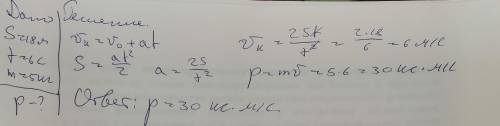 Дано
S=18м
t=6с
m=5кг
p-?
Решение.
vк=v₀+at
S=at²/2 a=2S/t²
vк=2St/t²=2·18/6=6 м/с
p=mv=5·6=30 кг·м/с
Ответ: p=30 кг·м/с.